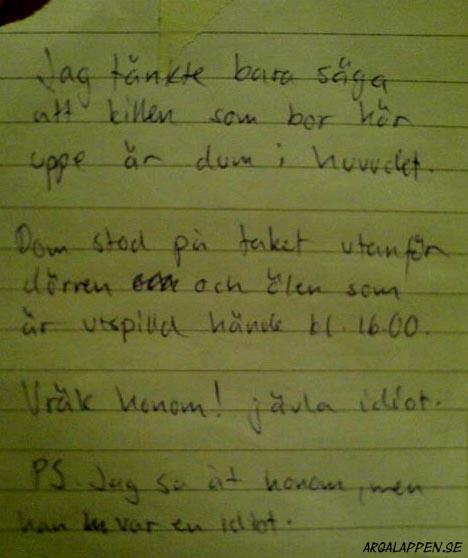 Jag tänkte bara säga
att killen som bor här
uppe är dum i huvudet.
Dom stod på taket utanför
dörren och ölen som
är utspilld hände kl. 16.00.
Vräk honom! jävla idiot.
PS. Jag sa åt honom, men
han var en idiot.
ARGALAPPEN.SE